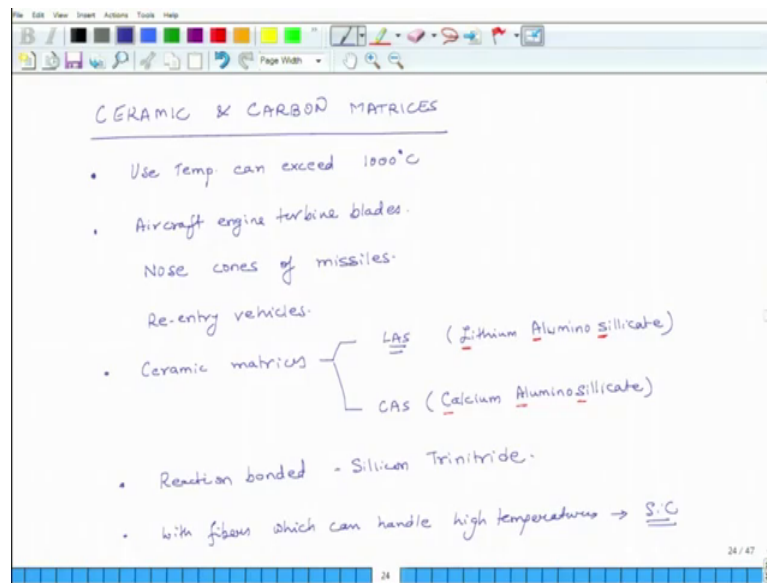 File Edit View Insert Actions Tools Help
B I
Page Width
CERAMIC & CARBON MATRICES
• Use Temp. can exceed 1000°C
• Aircraft engine turbine blades.
Nose cones of missiles.
Re-entry vehicles.
• Ceramic matrices
LAS (Lithium Alumino Sillicate)
CAS (Calcium Alumino Sillicate)
• Reaction bonded - Sillicon Trinitride.
• With fibers which can handle high temperatures → SiC
24 / 47
24